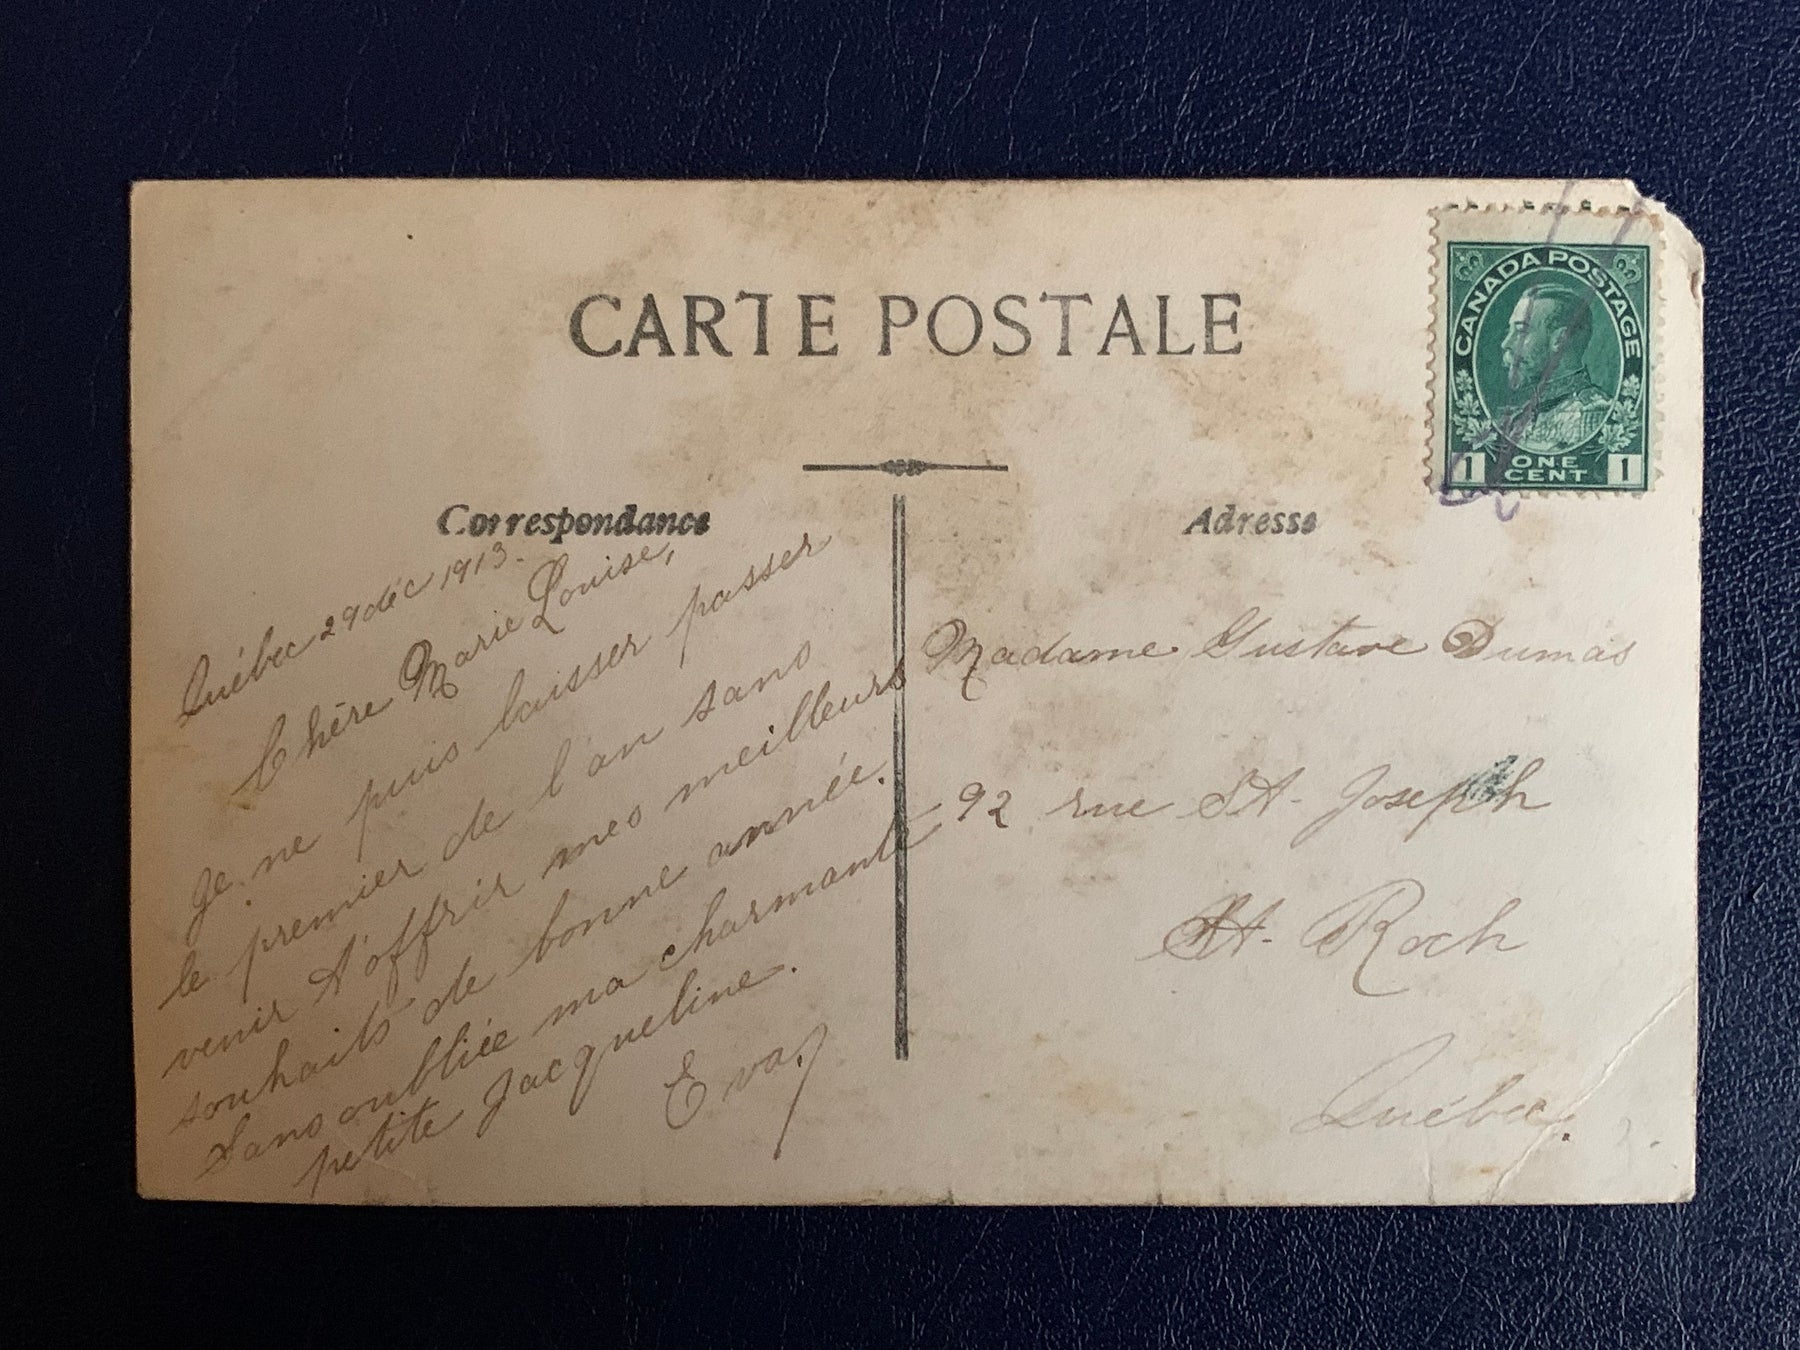 CARTE POSTALE
CANADA POSTAGE
1 ONE CENT 1
Correspondance
Québec 29 déc 1913.
Chère Marie Louise,
Je ne puis laisser passer
le premier de l'an sans
venir t'offrir mes meilleurs
souhaits de bonne année.
Sans oubliée ma charmante
petite Jacqueline.
Eva.
Adresse
Madame Gustave Dumas
92 rue St. Joseph
St. Roch
Québec.